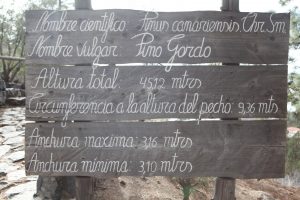 Nombre científico: Pinus canariensis. Chr. Sm
Nombre vulgar: Pino Gordo
Altura total: 45,12 mtrs
Circunferencia a la altura del pecho: 9,36 mts.
Anchura maxima: 3,16 mtrs
Anchura minima: 3,10 mtrs